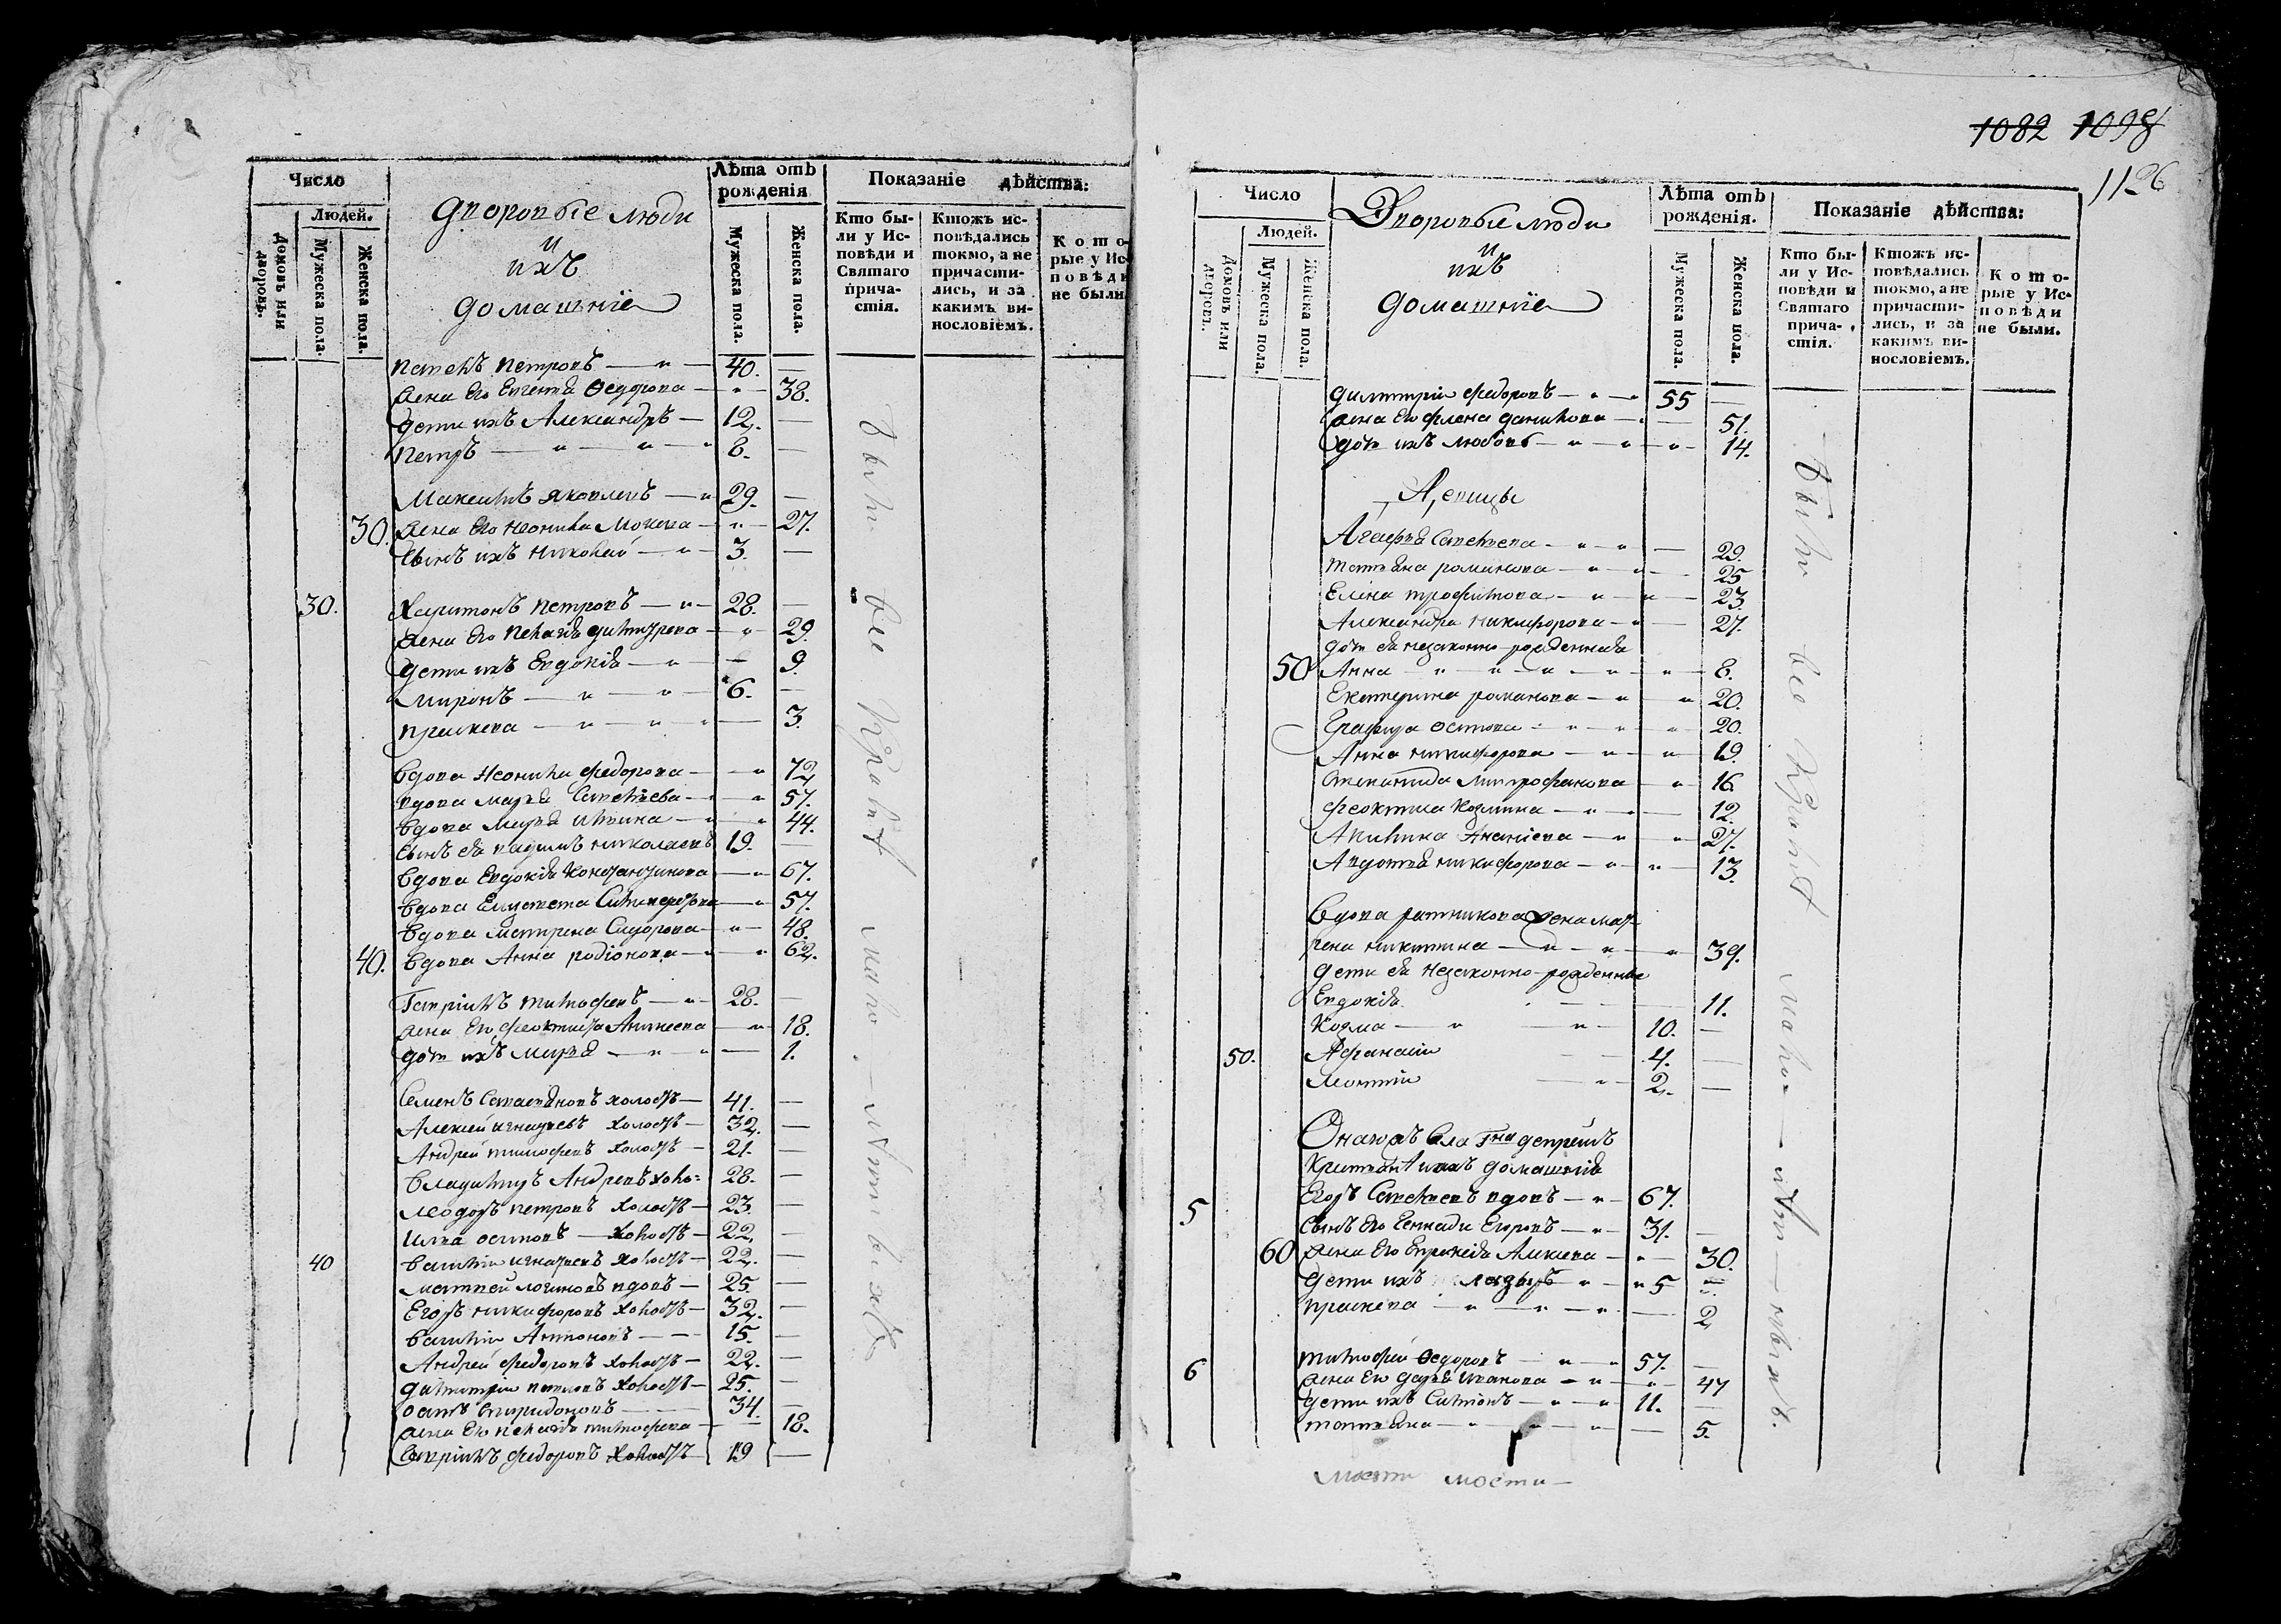 Число
Людей.
Домовъ или дворовъ.
Мужеска пола.
Женска пола.
Дворовые люди
и
ихъ
домашніе
Лѣта отъ рожденія
Мужеска пола.
Женска пола.
Показаніе дѣйства:
Кто бы-
ли у Ис-
повѣди и
Святаго
прича-
стія.
Ктожъ ис-
повѣдались
токмо, а не
причасти-
лись, и за
какимъ ви-
нословіемъ.
Кото-
рые у Ис-
повѣди
не были
Павелъ Петровъ 40.
жена его Евгенія Ѳедорова 38.
дети ихъ Александръ 12.
Петръ 8.
Максимъ Яковлевъ 29.
30. жена его Леонила 27.
сынъ ихъ Николай 3.
30. Харитонъ Петровъ 28.
жена его Пелагѣя Димитрева 29.
дети ихъ Евдокія 9.
Миронъ 6.
Прасковья 3.
вдова Леонила Федорова 72.
вдова Марья Савельева 57.
вдова Марья Ильина 44.
сынъ ея Вадимъ Николаевъ 19.
вдова Евдокія Константинова 67.
вдова Елисавета 57.
вдова Матрена Сидорова 48.
40. вдова Анна Родіонова 62.
Гавріилъ Тимофевъ 28.
жена его Феоктиста 18.
дочь ихъ Марья 1.
Семенъ холостъ 41.
Алексей Игнатьевъ холостъ 32.
Андрей Тимофевъ холостъ 21.
Владимиръ Андревъ холо: 28.
Ѳеодоръ Петровъ холостъ 23.
Илья Осиповъ холостъ 22.
40 Василій Игнатьевъ холостъ 22.
Матвей Логиновъ вдовъ 25.
Егоръ Никифоровъ холостъ 32.
Василій Антоновъ 15.
Андрей Федоровъ холостъ 22.
Димитрій Павловъ холостъ 25.
Спиридоновъ 34.
жена его Пелагѣя Тимофеева 18.
Гавріилъ Федоровъ холостъ 19
были все кромѣ мало-лѣтныхъ
1082 1098
1126
Число
Людей.
Домовъ или дворовъ.
Мужеска пола.
Женска пола.
Дворовые люди
и
ихъ
домашніе
Лѣта отъ рожденія.
Мужеска пола.
Женска пола.
Показаніе дѣйства:
Кто бы-
ли у Ис-
повѣди и
Святаго
прича-
стія.
Ктожъ ис-
повѣдались
токмо, а не
причасти-
лись, и за
какимъ ви-
нословіемъ.
Кото-
рые у Ис-
повѣди
не были.
Димитрій Федоровъ 55
жена его Елена Данилова 51.
дочь ихъ Любовь 14.
Девицы
Агафья Савельева 29.
Татьяна Романова 25
Елена Трофимова 23.
Александра Никифорова 27.
дочь ея незаконно-рожденная
50 Анна 8.
Екатерина Романова 20.
Осипова 20.
Анна Никифорова 19.
Степанида Митрофанова 16.
Феоктиста Козмина 12.
Акилина Ананіева 27.
Авдотья Никифорова 13.
Вдова ратникова жена Мат-
рена Никитина 39.
дети ея незаконно-рожденные
Евдокія 11.
Козма 10.
50. Афанасій 4.
Леонтій 2.
Онагожъ села
Крестьяне и ихъ домашнія
5 Егоръ Савельевъ вдовъ 67.
сынъ его Геннади Егоровъ 31.
60 жена его Евфимія Алексеева 30.
дети ихъ 5
Прасковья 2
6 Тимофей Ѳедоровъ 57.
жена его Дарья Иванова 47
дети ихъ Симіонъ 11.
Татьяна 5.
были все кромѣ мало-лѣтныхъ.
мости мости